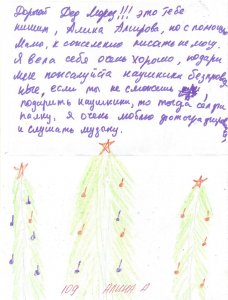 Дорогой Дед Мороз!!! это тебе
пишит, Алина Амирова, но с помощью
Мамы, к сожелению писать не могу.
Я вела себя очень хорошо, подари
мне пожалуйста наушники безпровод
ные, если ты не сможешь
подарить наушники, то тогда селфи
палку. Я очень люблю фотографиров
и слушать музыку.
109 Алина А